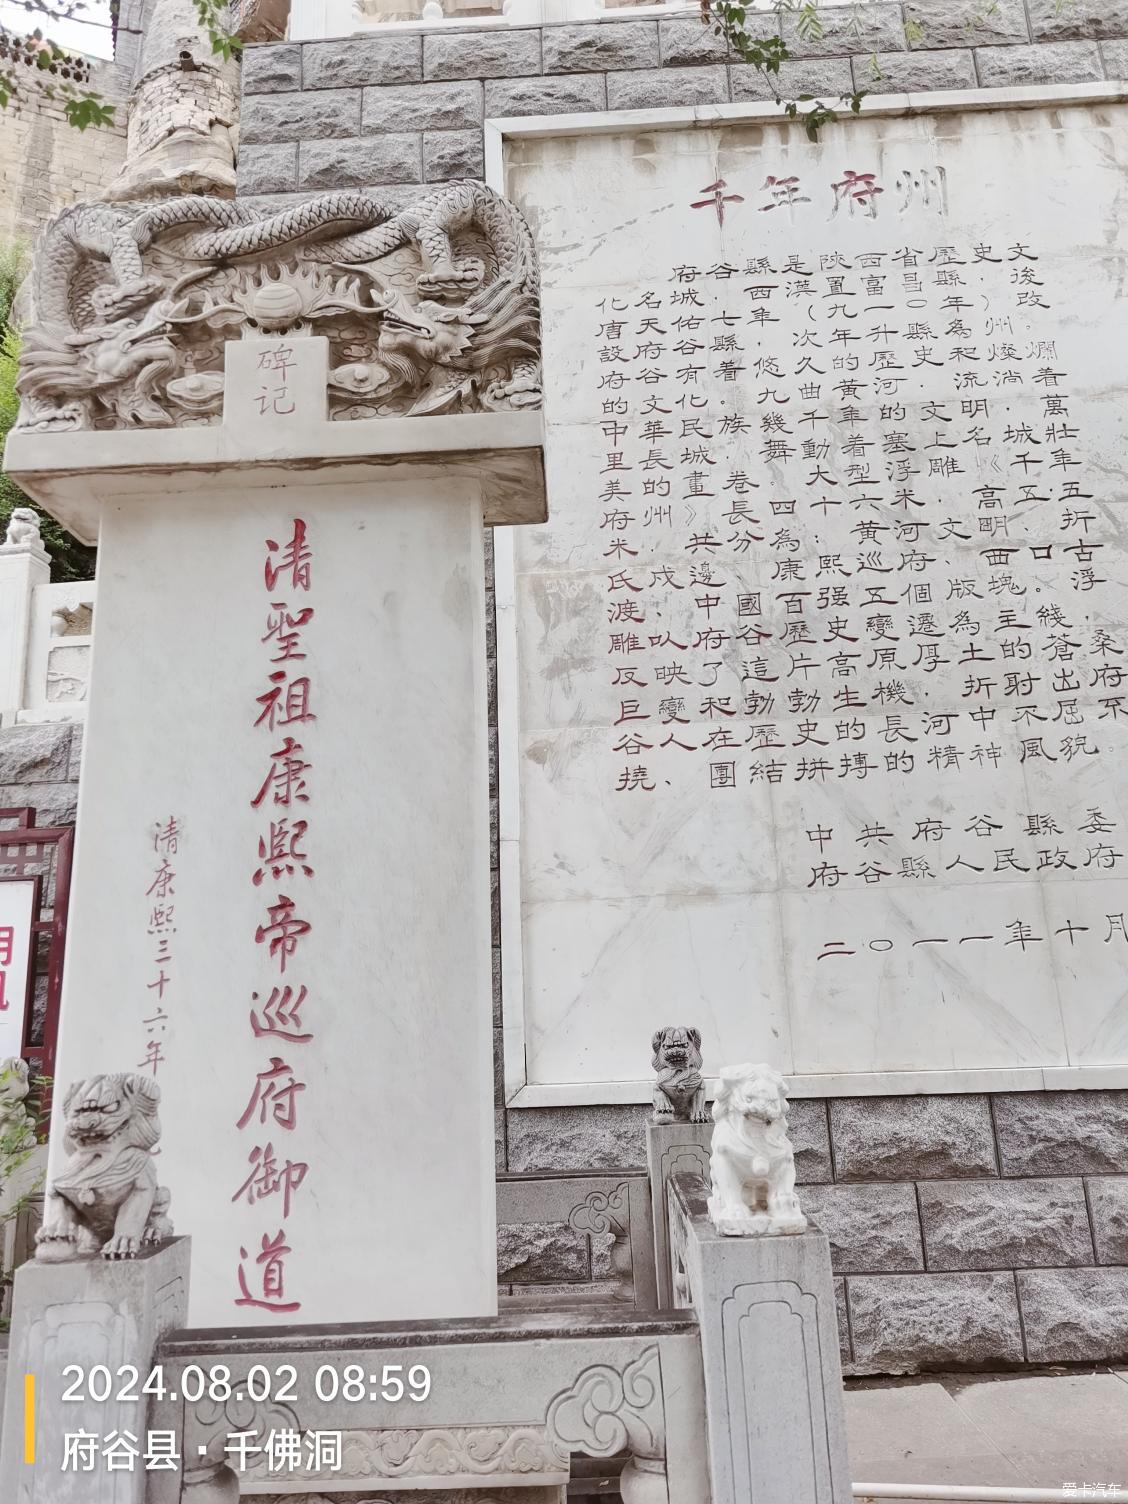 碑记
清聖祖康熙帝巡府御道
清康熙三十六年
千年府州
府谷縣是陝西省歷史文
化名城,西漢置富昌縣,後
唐天佑七年(九一〇年)改
設府谷縣,次年升縣為州。
府谷有着悠久的歷史和燦爛
的文化。九曲黃河,流淌着
中華民族幾千年的文明,萬
里長城舞動着塞上名城壯
美的畫卷。大型浮雕《千年
府州》長四十六米,高五·五
米,共分為:黃河文明、折
氏戍邊、康熙巡府、西口古
渡、中國百強五個版塊。浮
雕以府谷歷史變遷為主綫,
反映了這片高原厚土的蒼桑
巨變和勃勃生機,折射出府
谷人在歷史的長河中不屈不
撓、團結拼搏的精神風貌。
中共府谷縣委
府谷縣人民政府
二〇一一年十月
2024.08.02 08:59
府谷县·千佛洞
爱卡汽车